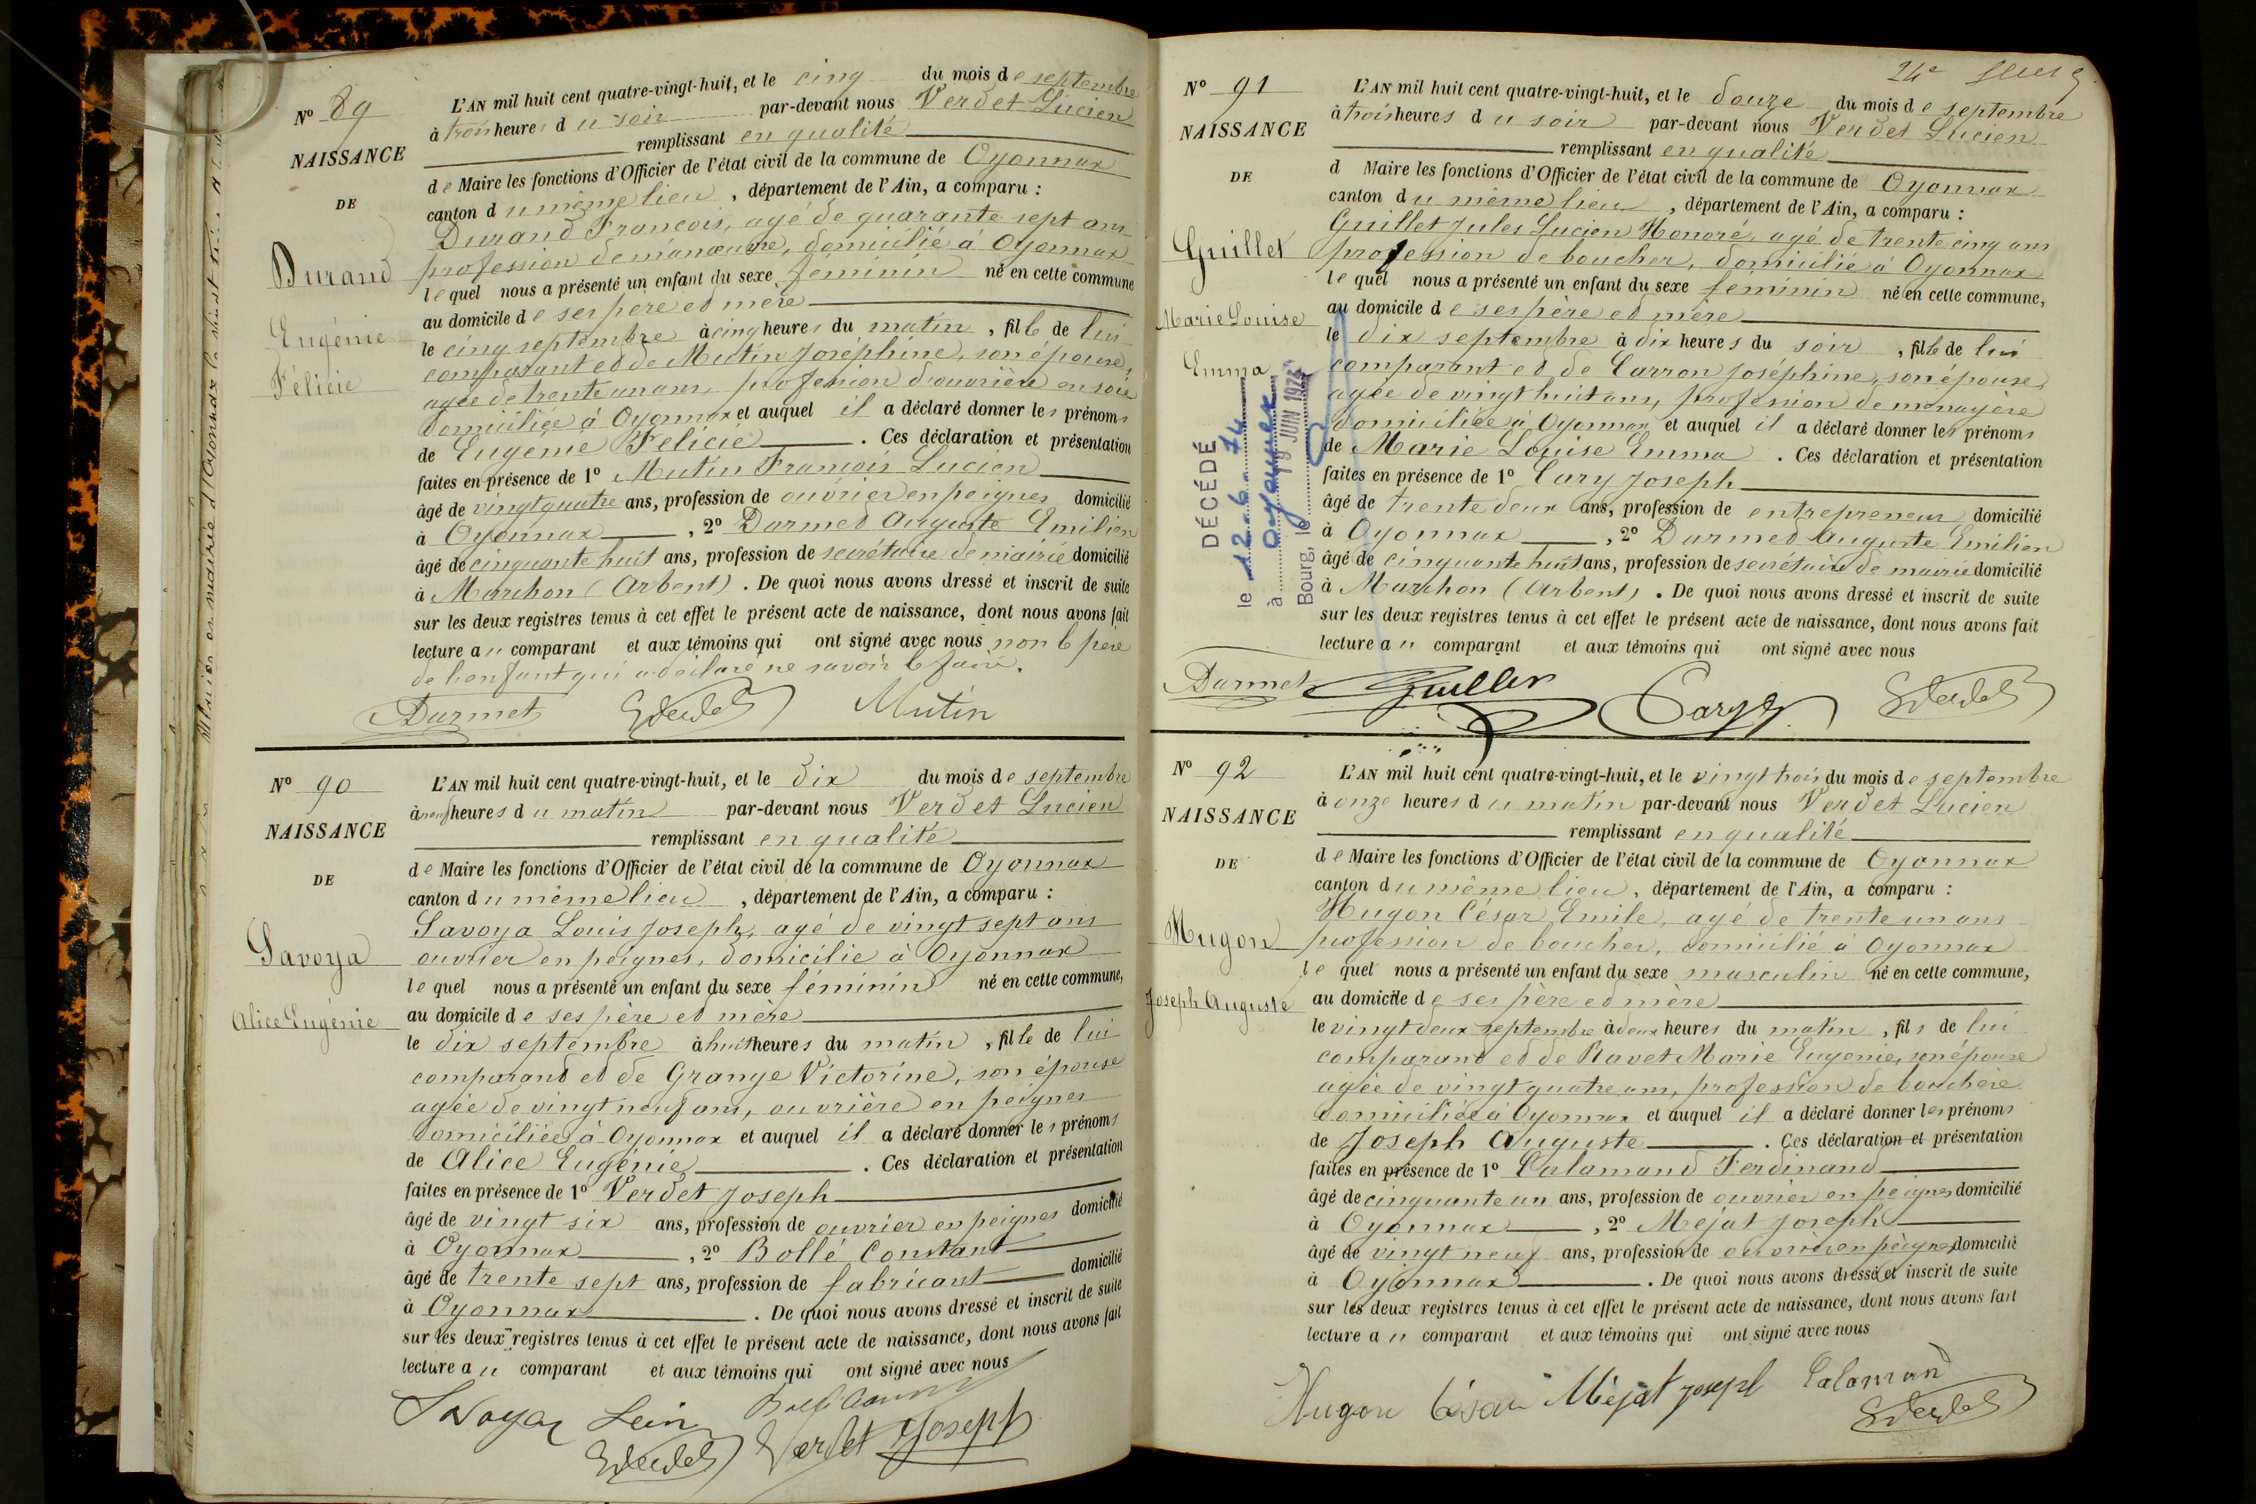 Nº 89
NAISSANCE
DE
Durand
Eugénie
Félicie
L'AN mil huit cent quatre-vingt-huit, et le cinq du mois de septembre
à trois heures du soir par-devant nous Verdet Lucien
remplissant en qualité
de Maire les fonctions d'Officier de l'état civil de la commune de Oyonnax
canton du même lieu, département de l'Ain, a comparu :
Durand François, agé de quarante sept ans
profession de manœuvre, domicilié à Oyonnax
lequel nous a présenté un enfant du sexe féminin né en cette commune
au domicile de ses père et mère
le cinq septembre à cinq heures du matin, fille de lui
comparant et de Mutin Joséphine, son épouse,
agée de trente un ans, profession d'ouvrière en soie
domiciliée à Oyonnax et auquel il a déclaré donner les prénoms
de Eugénie Félicie. Ces déclaration et présentation
faites en présence de 1º Mutin François Lucien
âgé de vingt quatre ans, profession de ouvrier en peignes domicilié
à Oyonnax, 2º Darmet Auguste Emilien
âgé de cinquante huit ans, profession de secrétaire de mairie domicilié
à Marchon (Arbent). De quoi nous avons dressé et inscrit de suite
sur les deux registres tenus à cet effet le présent acte de naissance, dont nous avons fait
lecture au comparant et aux témoins qui ont signé avec nous non le père
de l'enfant qui a déclaré ne savoir le faire.
Darmet LVerdet Mutin
Nº 90
NAISSANCE
DE
Savoya
Alice Eugénie
L'AN mil huit cent quatre-vingt-huit, et le dix du mois de septembre
à neuf heures du matin par-devant nous Verdet Lucien
remplissant en qualité
de Maire les fonctions d'Officier de l'état civil de la commune de Oyonnax
canton du même lieu, département de l'Ain, a comparu :
Savoya Louis Joseph, agé de vingt sept ans
ouvrier en peignes, domicilié à Oyonnax
lequel nous a présenté un enfant du sexe féminin né en cette commune,
au domicile de ses père et mère
le dix septembre à huit heures du matin, fille de lui
comparant et de Grange Victorine, son épouse
agée de vingt neuf ans, ouvrière en peignes
domiciliée à Oyonnax et auquel il a déclaré donner les prénoms
de Alice Eugénie. Ces déclaration et présentation
faites en présence de 1º Verdet Joseph
âgé de vingt six ans, profession de ouvrier en peignes domicilié
à Oyonnax, 2º Bollé Constant
âgé de trente sept ans, profession de fabricant domicilié
à Oyonnax. De quoi nous avons dressé et inscrit de suite
sur les deux registres tenus à cet effet le présent acte de naissance, dont nous avons fait
lecture au comparant et aux témoins qui ont signé avec nous
Savoya
LVerdet Verdet Joseph
24e
Nº 91
NAISSANCE
DE
Guillet
Marie Louise
Emma
DÉCÉDÉ
le 12-6-74
à Oyonnax
Bourg, le JUIN
L'AN mil huit cent quatre-vingt-huit, et le douze du mois de septembre
à trois heures du soir par-devant nous Verdet Lucien
remplissant en qualité
d Maire les fonctions d'Officier de l'état civil de la commune de Oyonnax
canton du même lieu, département de l'Ain, a comparu :
Guillet Jules Lucien Honoré, agé de trente cinq ans
profession de boucher, domicilié à Oyonnax
lequel nous a présenté un enfant du sexe féminin né en cette commune,
au domicile de ses père et mère
le dix septembre à dix heures du soir, fille de lui
comparant et de Carron Joséphine, son épouse,
agée de vingt huit ans, profession de menagère
domiciliée à Oyonnax et auquel il a déclaré donner les prénoms
de Marie Louise Emma. Ces déclaration et présentation
faites en présence de 1º Cary Joseph
âgé de trente deux ans, profession de entrepreneur domicilié
à Oyonnax, 2º Darmet Auguste Emilien
âgé de cinquante huit ans, profession de secrétaire de mairie domicilié
à Marchon (Arbent). De quoi nous avons dressé et inscrit de suite
sur les deux registres tenus à cet effet le présent acte de naissance, dont nous avons fait
lecture au comparant et aux témoins qui ont signé avec nous
Darmet Guillet Cary LVerdet
Nº 92
NAISSANCE
DE
Hugon
Joseph Auguste
L'AN mil huit cent quatre-vingt-huit, et le vingt trois du mois de septembre
à onze heures du matin par-devant nous Verdet Lucien
remplissant en qualité
de Maire les fonctions d'Officier de l'état civil de la commune de Oyonnax
canton du même lieu, département de l'Ain, a comparu :
Hugon César Emile, agé de trente un ans
profession de boucher, domicilié à Oyonnax
lequel nous a présenté un enfant du sexe masculin né en cette commune,
au domicile de ses père et mère
le vingt deux septembre à deux heures du matin, fils de lui
comparant et de Ravet Marie Eugenie, son épouse
agée de vingt quatre ans, profession de bouchère
domiciliée à Oyonnax et auquel il a déclaré donner les prénoms
de Joseph Auguste. Ces déclaration et présentation
faites en présence de 1º Calamand Ferdinand
âgé de cinquante un ans, profession de ouvrier en peignes domicilié
à Oyonnax, 2º Mejat Joseph
âgé de vingt neuf ans, profession de ouvrier en peignes domicilié
à Oyonnax. De quoi nous avons dressé et inscrit de suite
sur les deux registres tenus à cet effet le présent acte de naissance, dont nous avons fait
lecture au comparant et aux témoins qui ont signé avec nous
Hugon César Méjat Joseph Calaman
LVerdet